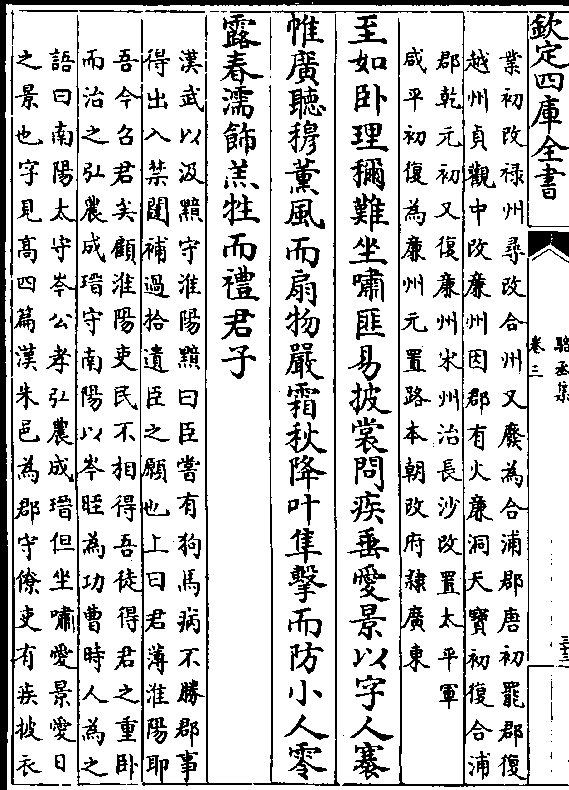 欽定四庫全書
業初改祿州尋改合州又廢為合浦郡唐初罷郡復
越州貞觀中改廉州因郡有大廉洞天寶初復合浦
郡乾元初又復廉州宋州治長沙改置太平軍
咸平初復為廉州元置路本朝改府隸廣東
至如卧理稱難坐嘯匪易披裳問疾垂愛景以字人褰
帷廣聽穆薰風而扇物嚴霜秋降叶隼擊而防小人零
露春濡飾羔牲而禮君子
漢武以汲黯守淮陽黯曰臣嘗有狗馬病不勝郡事
得出入禁闥補過拾遺臣之願也上曰君薄淮陽耶
吾今召君矣顧淮陽吏民不相得吾徒得君之重卧
而治之弘農成瑨守南陽以岑晊為功曹時人為之
語曰南陽太守岑公孝弘農成瑨但坐嘯愛景愛日
之景也字見高四篇漢朱邑為郡守僚吏有疾披衣
駱丞集
卷三